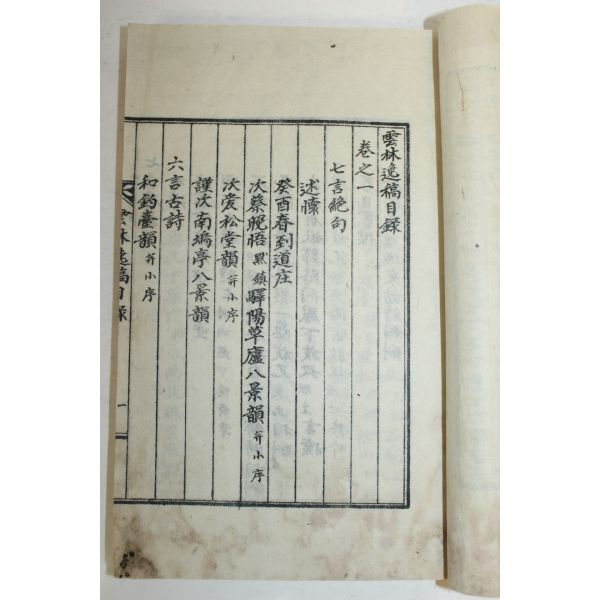 雲林逸稿目錄
卷之一
七言絶句
述懷
癸酉春到道庄
次蔡晩悟 興鎭 驛陽草廬八景韻 幷小序
次裵松堂韻 幷小序
謹次南塢亭八景韻
六言古詩
和釣臺韻 幷小序
雲林逸稿目錄 一